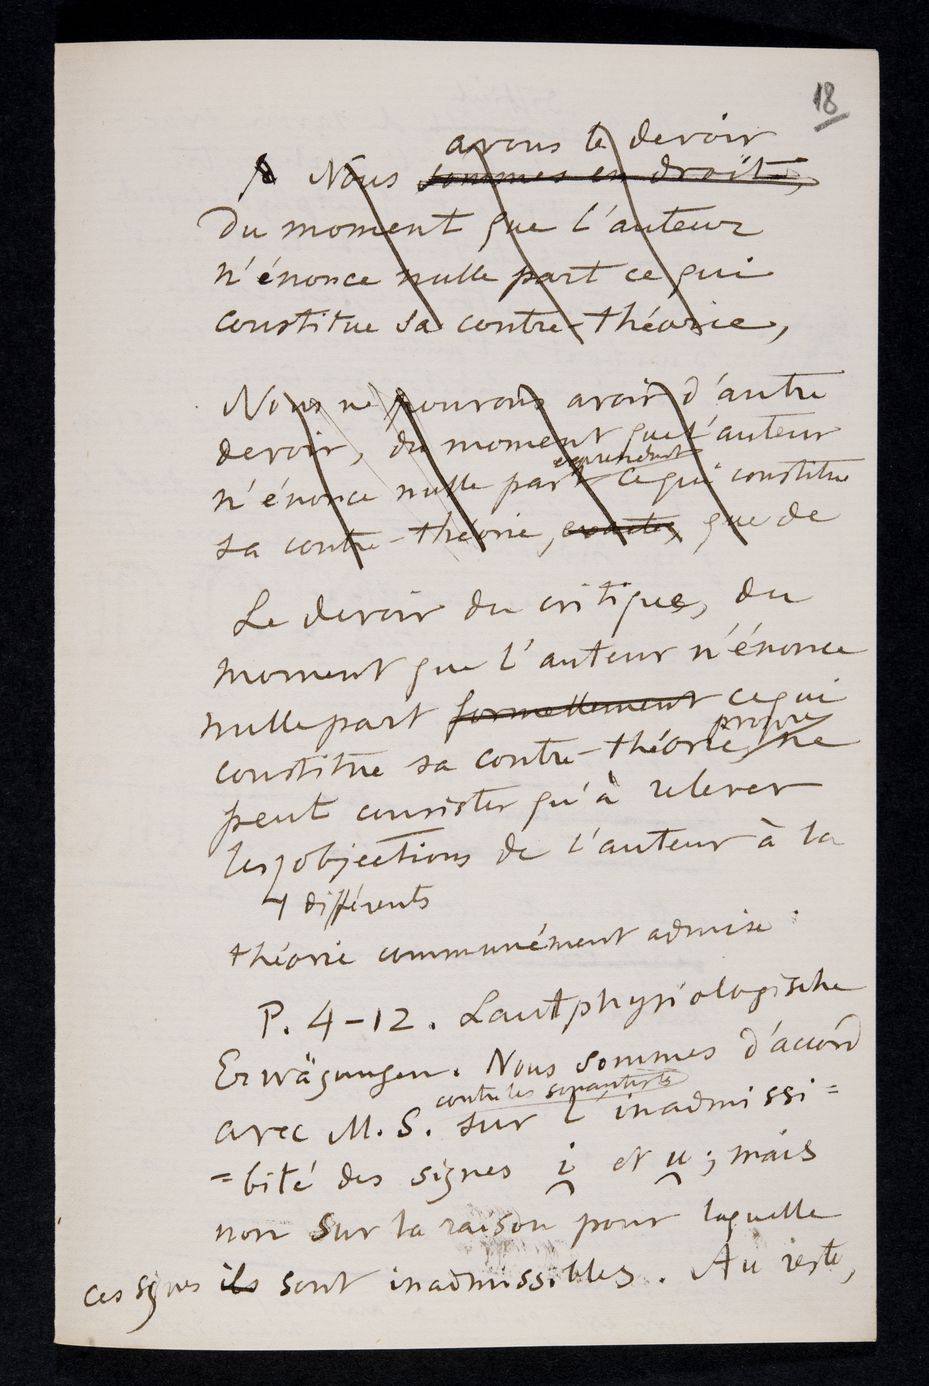 18
avons le devoir
Nous sommes en droit,
Du moment que l'auteur
n'énonce nulle part ce qui
constitue sa contre-théorie,
Nous ne pouvons avoir d'autre
devoir, du moment que l'auteur
cependant
n'énonce nulle part ce qui constitue
sa contre-théorie, que de
Le devoir du critique, du
moment que l'auteur n'énonce
nulle part formellement ce qui
propre
constitue sa contre-théorie, ne
peut consister qu'à relever
les objections de l'auteur à la
4 différents
théorie communément admise :
P. 4-12. Lautphysiologische
Erwägungen. Nous sommes d'accord
contre les sonantistes
avec M. S. sur l'inadmissi=
=bité des signes i̯ et u̯ ; mais
non sur la raison pour laquelle
ces signes ils sont inadmissibles. Au reste,